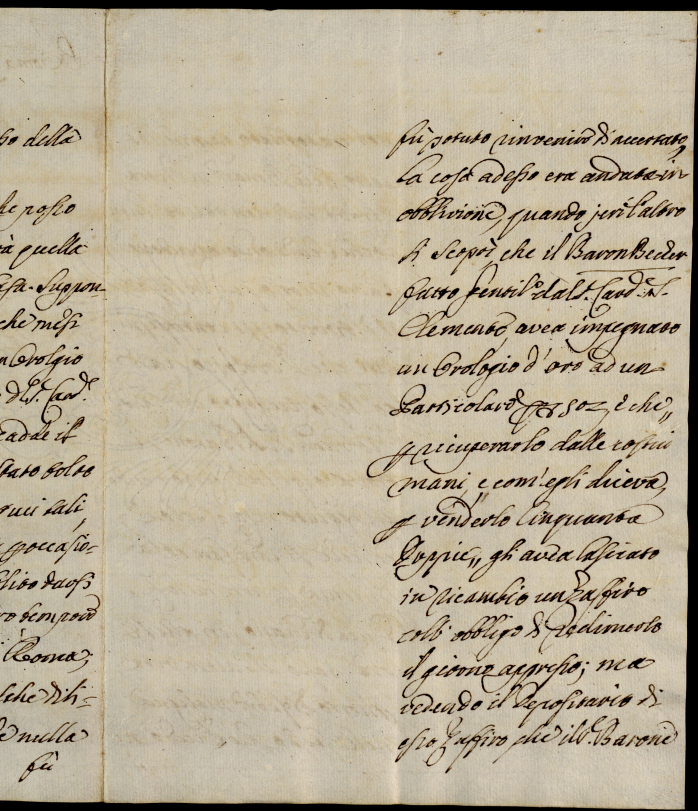 so della
che posso
rà quella
esa. Suppon-
che mesi
un Orologio
del S.r Card.e
cadde il
stato tolto
cruci tali,
occasio-
ro tempo
Roma,
nulla
fù
fù potuto rinvenire di accertato,
La cosa adesso era andata in
obblivione, quando jeri l'altro
si scoprì che il Baron Becker
fatto Gentil.o dal S.r Card.
Clemente, avea impegnato
un Orologio d'oro ad un
Particolare 80z, e che,,
p ricuperarlo dalle costui
mani,, e com'egli diceva,
p venderlo Cinquanta
Doppie,, gli avea lasciato
in ricambio un Zaffiro
coll' obbligo di redimerlo
il giorno appresso; ma
vedendo il Depositario di
esso Zaffiro che il S.r Barone